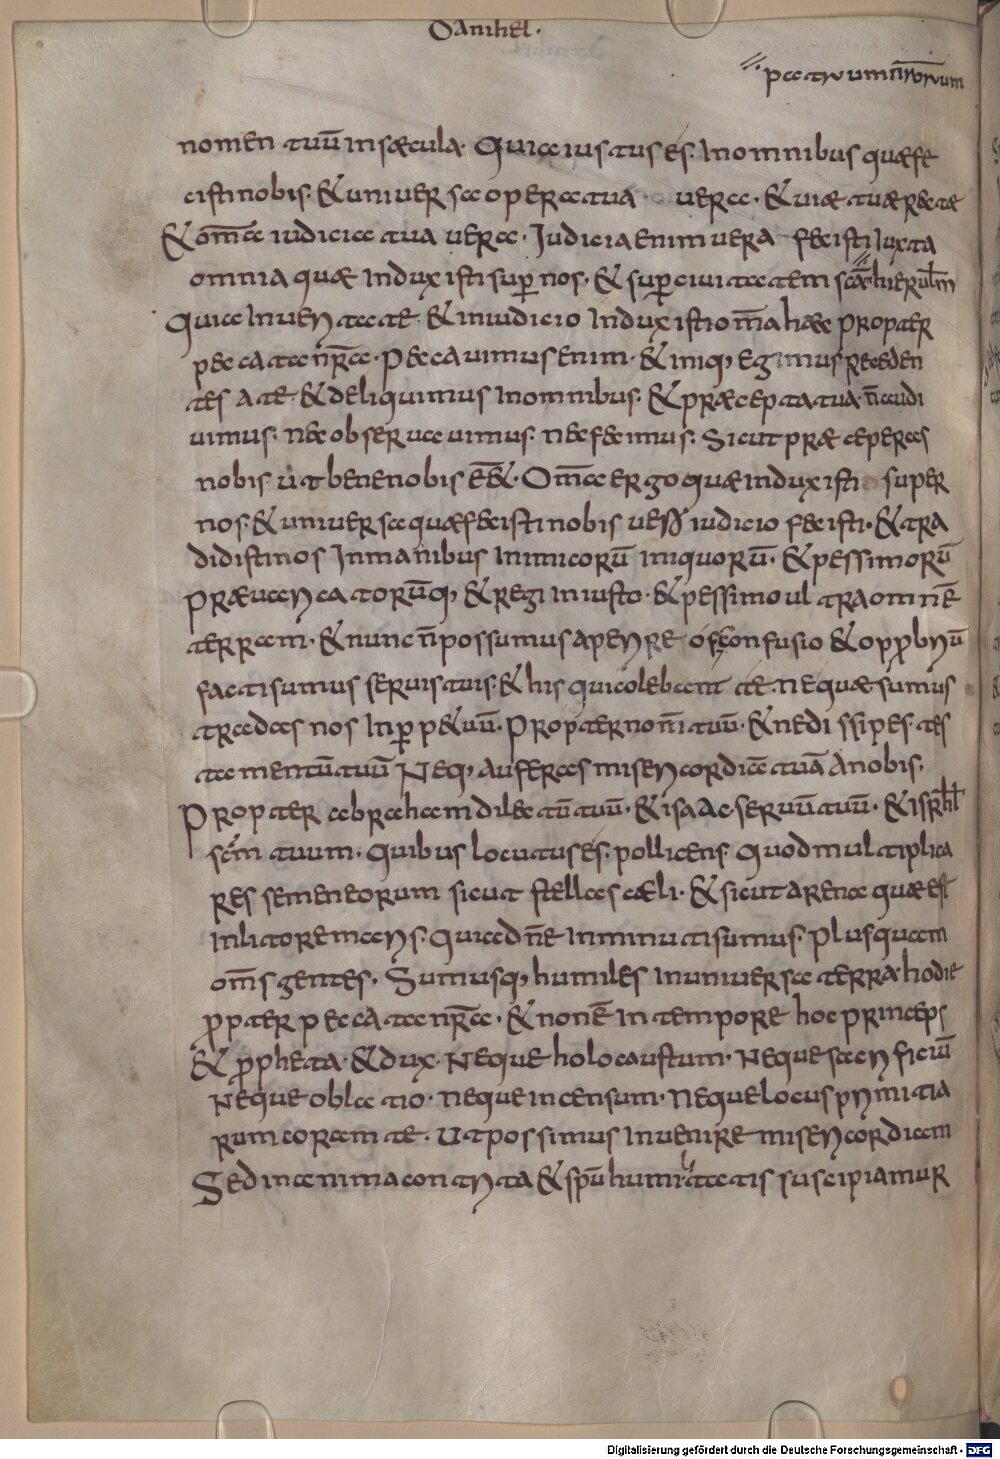 Danihel·
// patrum nrorum
nomen tuū insæcula· Quia iustus es· Inomnibus quæfe
cistinobis· & uniuersa operatua uera· & uiæ tuærectæ
& om̄a iudicia tua uera· Iudicia enim uera fecisti Iuxta
omnia quæ Induxisti sup̄ nos· & sup̄ciuitatem sc̄am // hierusl̄m
Quia Inueritate· & iniudicio Induxistiom̄a hæc propter
peccata nr̄a· Peccauimus enim· & iniq; egimus receden
tes a te· & deliquimus Inomnibus· & præcepta tua n̄ audi
uimus· nec obseruauimus· nec fecimus· Sicut præceperas
nobis ut bene nobis eē&· Om̄a ergo quæ induxisti super
nos· & uniuersa quæ fecisti nobis ueſſ iudicio fecisti· & tra
didistinos Inmanibus Inimicorū iniquorū· & pessimorū
Præuaricatorūq; & regi iniusto· & pessimo ultra omnē
terram· & nunc n̄possumus aperire os confusio & opp̱briū
facti sumus seruis tuis· & his qui colebant te· nequæsumus
tradas nos Inp̱p&uū· Propter nom̄ tuū· & nedissipes· tes
tamentū tuū Neq; auferas misericordiā tuā Anobis·
Propter abraham dilectū tuū· & isaac· seruū tuū· & isrl̄hl
sc̄m tuum· quibus locutus es· pollicens· quod multiplica
res semen eorum sicut stellas cæli· & sicut arena quæ est
In litore maris· Quia dn̄e Inminuti sumus· plus quam
om̄s gentes· Sumusq; humiles In uniuersa terra· hodie
p̱pter peccata nr̄a· & non ē In tempore hoc princeps
& p̱pheta· & dux· Neque holocaustum· Neque sacrificiū
Neque oblatio· neque incensum· Neque locus primitia
rum coram te· Ut possimus Inuenire misericordiam
Sed in anima contrita & sp̄u humilitatis suscipiamur
Digitalisierung gefördert durch die Deutsche Forschungsgemeinschaft - DFG